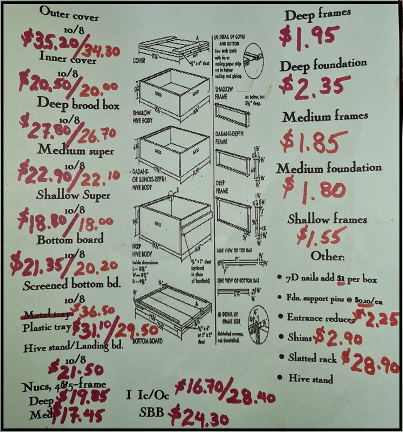 Outer cover
10/8
$35.20/34.30
Inner cover
10/8
$20.50/20.00
Deep brood box
10/8
$27.80/26.70
Medium super
10/8
$22.90/22.10
Shallow Super
10/8
$18.80/18.00
Bottom board
10/8
$21.35/20.20
Screened bottom bd.
10/8
Metal tray $36.50
Plastic tray $31.10/29.50
10/8
Hive stand/Landing bd.
$21.50
Nucs, 4&5-frame
Deep $19.85
Med $17.45
COVER
SHALLOW
HIVE BODY
DADANT-
OR ILLINOIS-DEPTH
HIVE BODY
DEEP
HIVE BODY
BOTTOM BOARD
SHALLOW
FRAME
DADANT-DEPTH
FRAME
DEEP
FRAME
SIDE VIEW OF TOP BAR
SIDE VIEW OF BOTTOM BAR
I Ic/Oc $16.70/28.40
SBB $24.30
Deep frames
$1.95
Deep foundation
$2.35
Medium frames
$1.85
Medium foundation
$1.80
Shallow frames
$1.55
Other:
• 7D nails add $1 per box
• Fdn. support pins @ $0.10/ea
• Entrance reducer $2.25
• Shims $2.90
• Slatted rack $28.90
• Hive stand